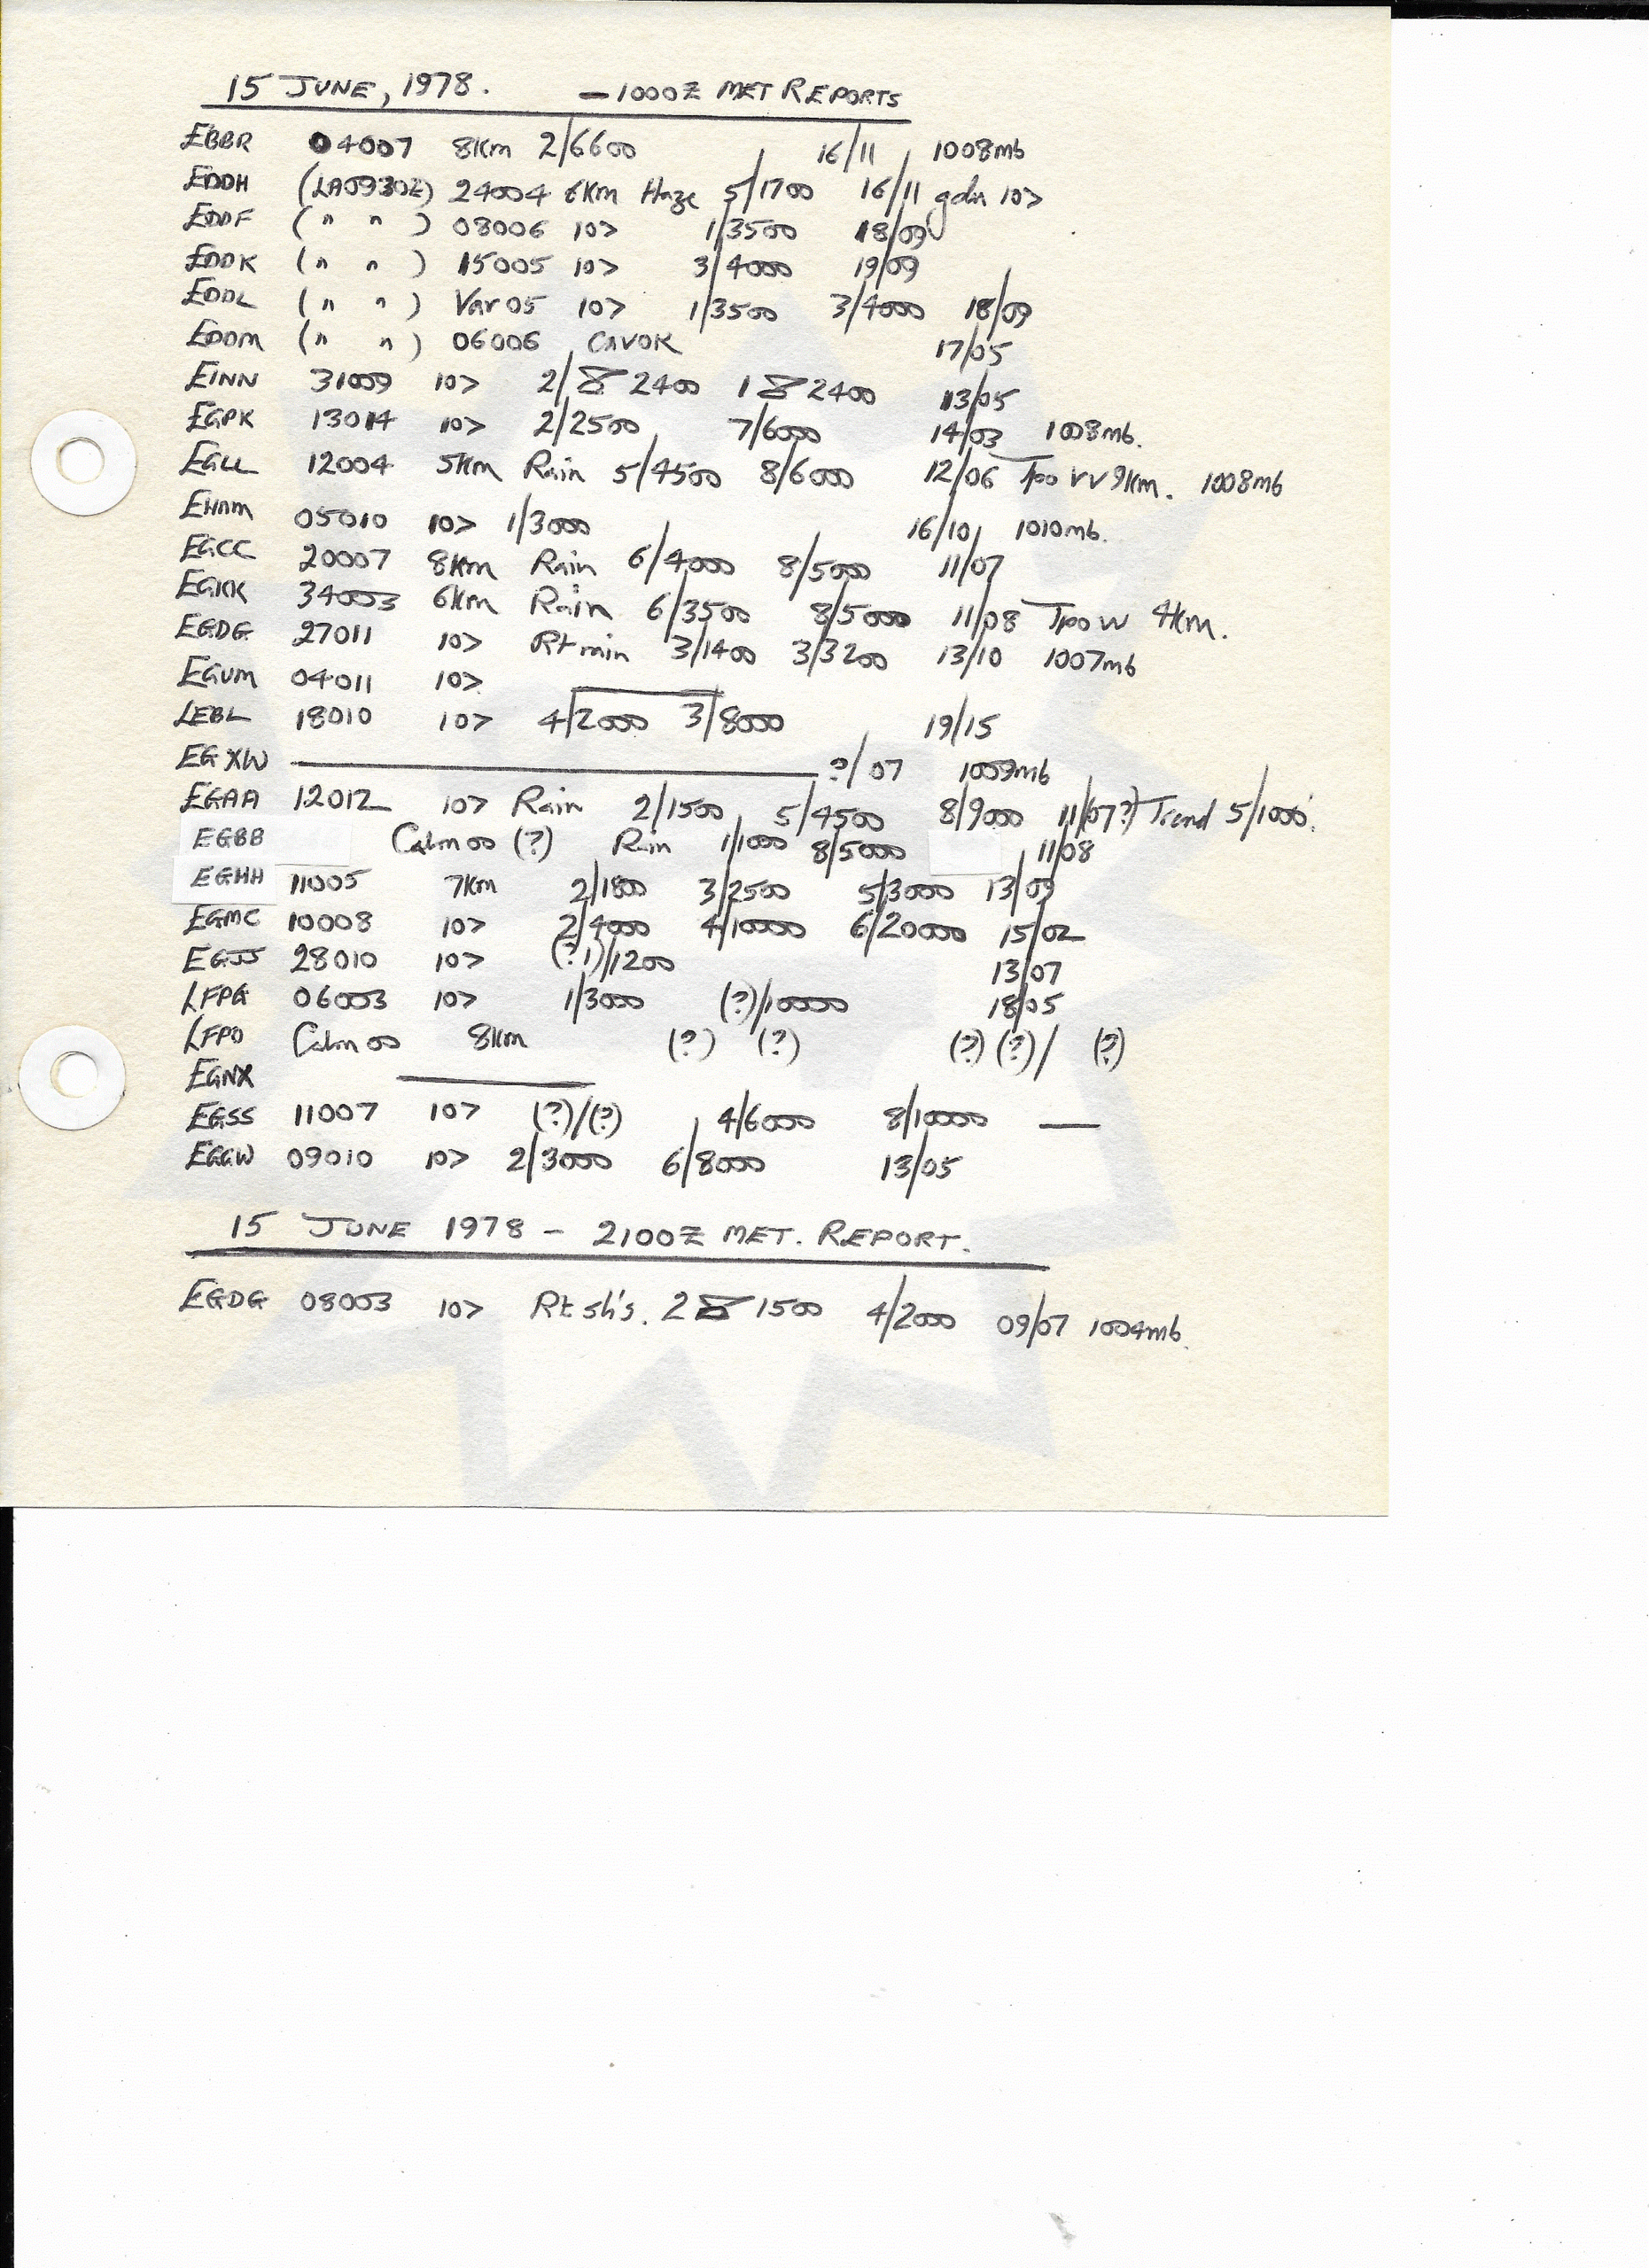 15 JUNE, 1978. - 1000Z MET REPORTS
EBBR 04007 8Km 2/6600 16/11 1008mb
EDDH (LA0930Z) 24004 6Km Haze 5/1700 16/11 gdn 10>
EDDF (" ") 08006 10> 1/3500 18/09
EDDK (" ") 15005 10> 3/4000 19/09
EDDL (" ") Var 05 10> 1/3500 3/4000 18/09
EDDM (" ") 06006 CAVOK 17/05
EINN 31009 10> 2/ 2400 1 2400 13/05
EGPK 13014 10> 2/2500 7/6000 14/03 1008mb.
EGLL 12004 5Km Rain 5/4500 8/6000 12/06 Tpo vv 9Km. 1008mb
EHAM 05010 10> 1/3000 16/10 1010mb.
EGCC 20007 8Km Rain 6/4000 8/5000 11/07
EGKK 34003 6Km Rain 6/3500 8/5000 11/08 Tpo vv 4Km.
EGDG 27011 10> Rt rain 3/1400 3/3200 13/10 1007mb
EGUM 04011 10>
LEBL 18010 10> 4/2000 3/8000 19/15
EGXW ?/07 1009mb
EGAA 12012 10> Rain 2/1500 5/4500 8/9000 11/(07?) Trend 5/1000'.
EGBB Calm 00 (?) Rain 1/1000 8/5000 11/08
EGHH 11005 7Km 2/1800 3/2500 5/3000 13/09
EGMC 10008 10> 2/4000 4/10000 6/20000 15/02
EGJJ 28010 10> (?1)/1200 13/07
LFPG 06003 10> 1/3000 (?)/10000 18/05
LFPO Calm 00 8Km (?) (?) (?) (?) / (?)
EGNX
EGSS 11007 10> (?)/(?) 4/6000 8/10000 —
EGGW 09010 10> 2/3000 6/8000 13/05
15 JUNE 1978 - 2100Z MET. REPORT.
EGDG 08003 10> Rt sh's. 2 1500 4/2000 09/07 1004mb.